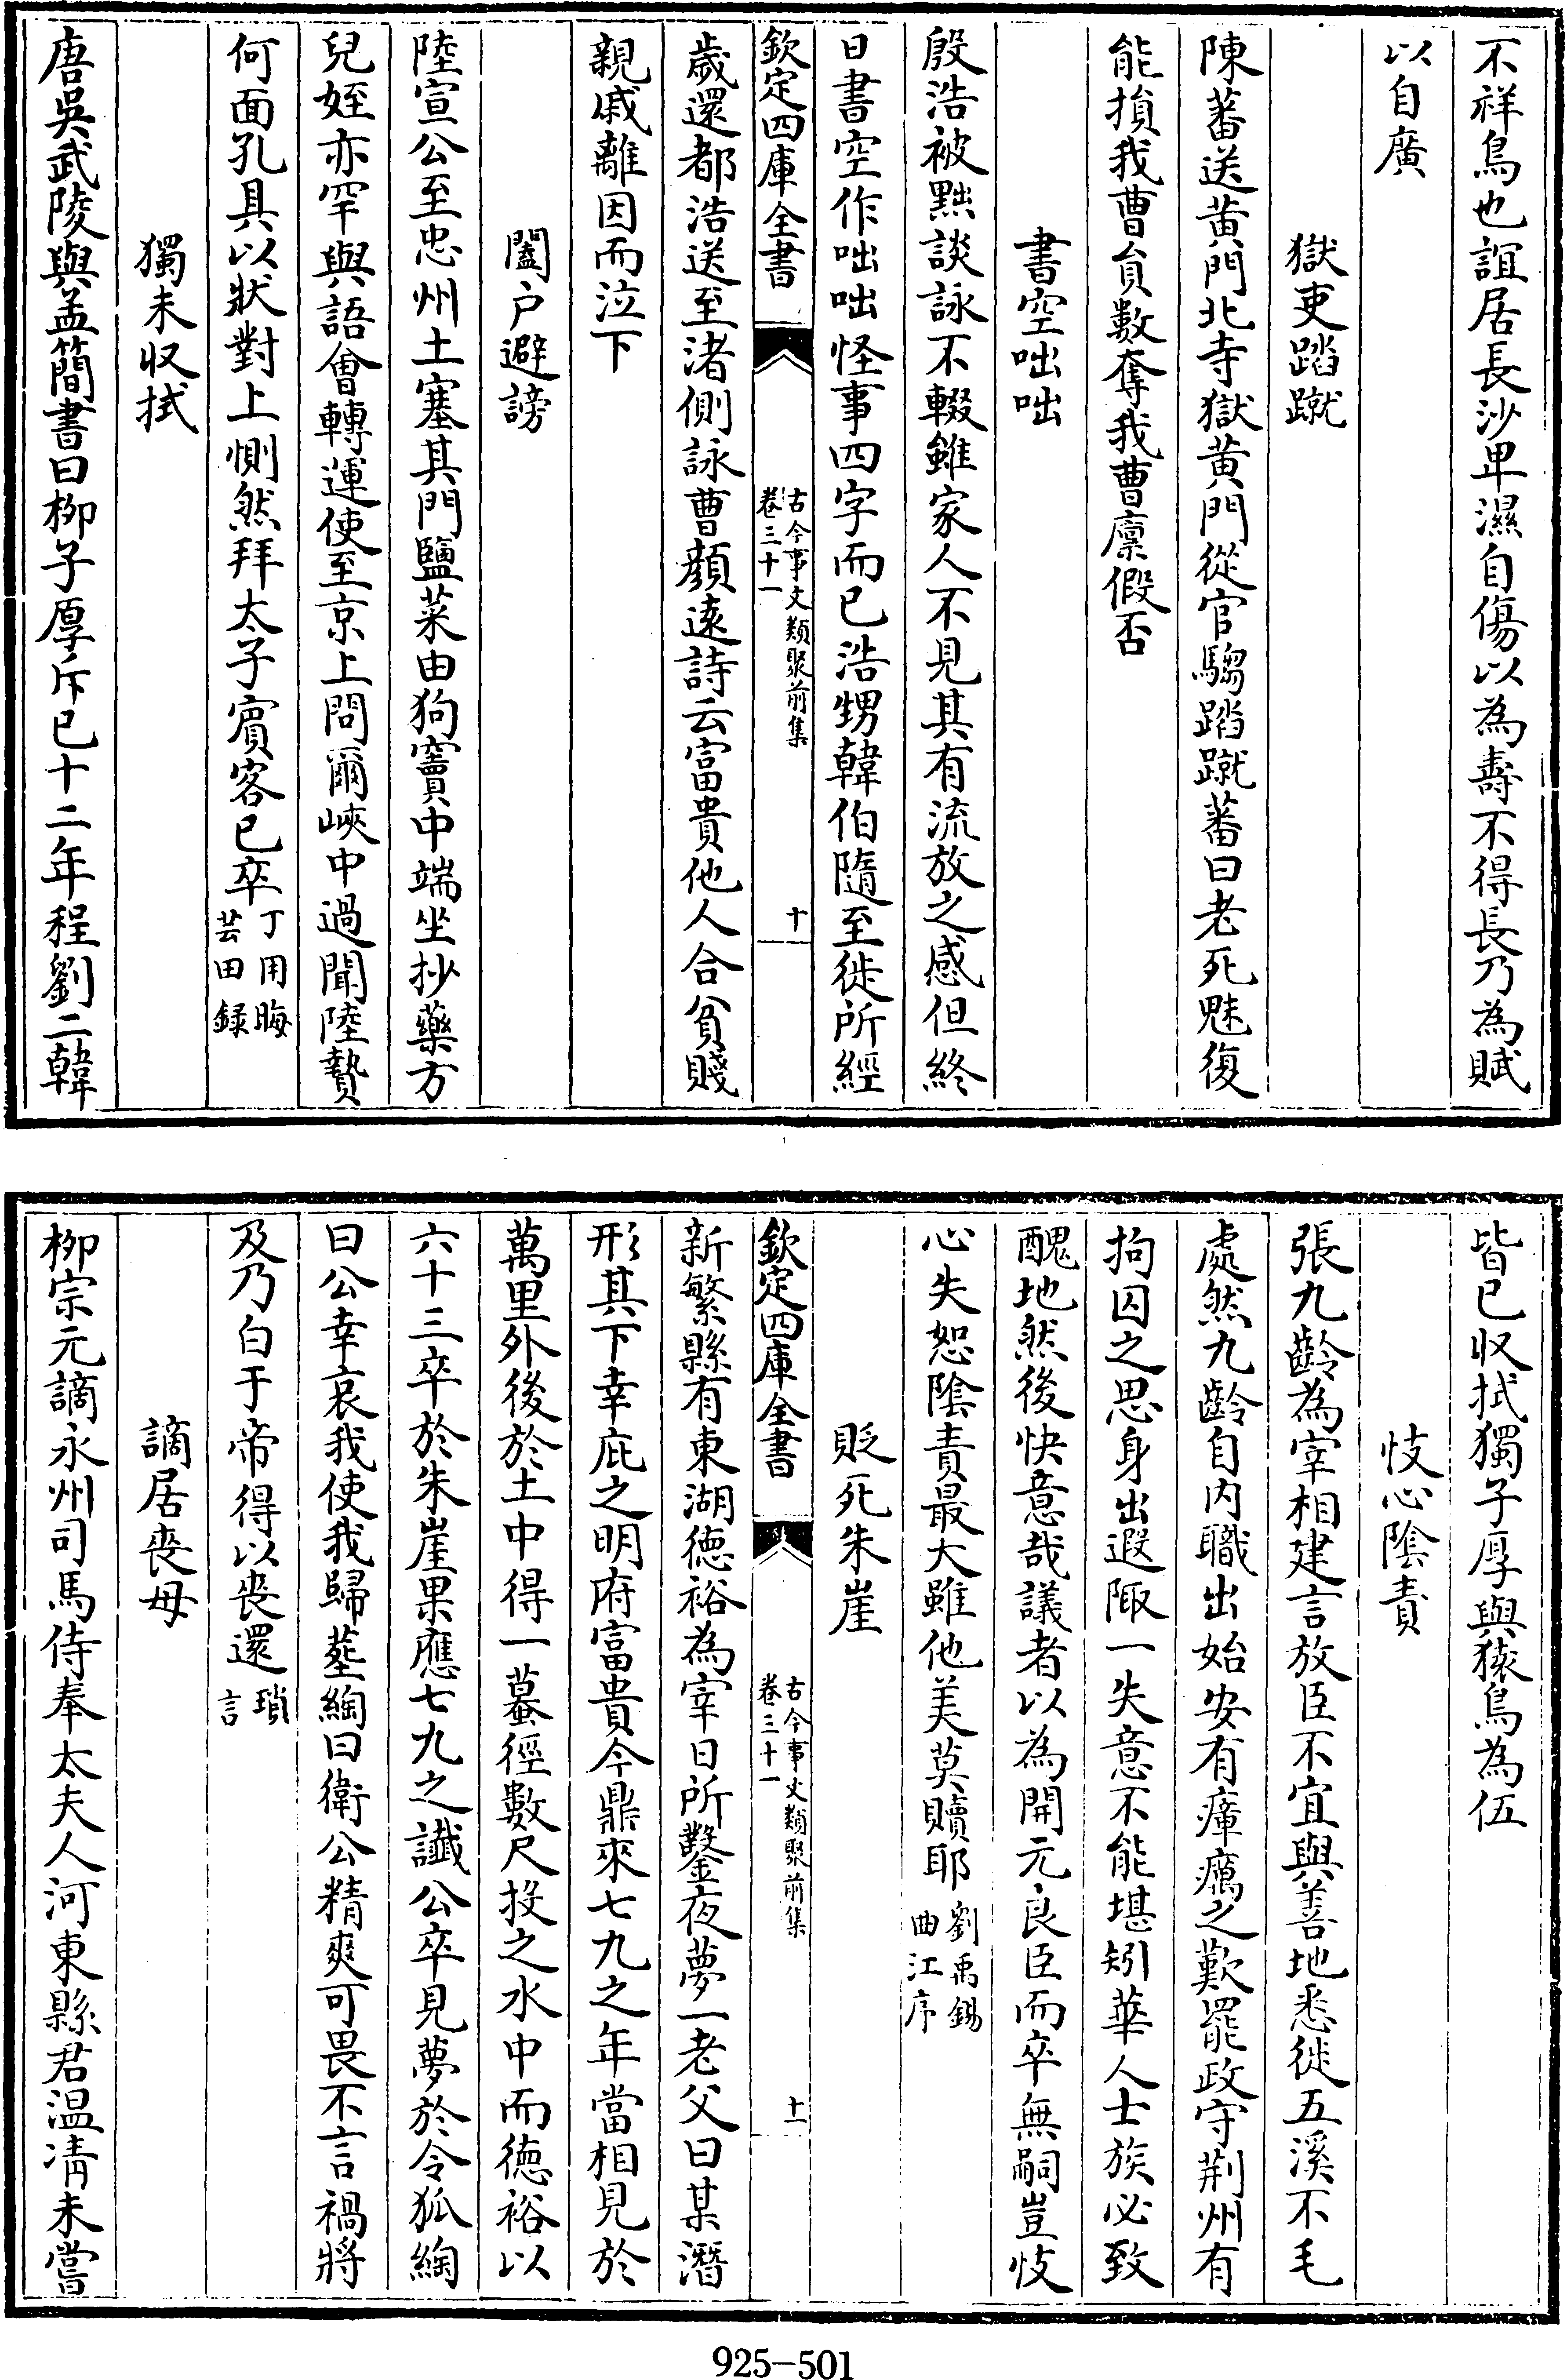 不祥鳥也誼居長沙卑濕自傷以為壽不得長乃為賦
以自廣
獄吏蹈蹴
陳蕃送黄門北寺獄黄門從官騶蹈蹴蕃曰老死魅復
能損我曹員數奪我曹廪假否
書空咄咄
殷浩被黜談詠不輟雖家人不見其有流放之感但終
日書空作咄咄怪事四字而已浩甥韓伯隨至徙所經
欽定四庫全書
古今事文類聚前集
卷三十一
十
歲還都浩送至渚側詠曹顔逺詩云富貴他人合貧賤
親戚離因而泣下
闔户避謗
陸宣公至忠州土塞其門鹽菜由狗竇中端坐抄藥方
兒姪亦罕與語會轉運使至京上問爾峽中過聞陸贄
何面孔具以狀對上惻然拜太子賓客已卒丁用晦
芸田録
獨未収拭
唐吳武陵與孟簡書曰柳子厚斥已十二年程劉二韓
皆已収拭獨子厚與猿鳥為伍
忮心陰責
張九齡為宰相建言放臣不宜與善地悉徙五溪不毛
處然九齡自内職出始安有瘴癘之歎罷政守荆州有
拘囚之思身出遐陬一失意不能堪矧華人士族必致
醜地然後快意哉議者以為開元良臣而卒無嗣豈忮
心失恕陰責最大雖他美莫贖耶劉禹錫
曲江序
貶死朱崖
欽定四庫全書
古今事文類聚前集
卷三十一
十一
新繁縣有東湖徳裕為宰日所鑿夜夢一老父曰某潛
形其下幸庇之明府富貴今鼎來七九之年當相見於
萬里外後於土中得一蟇徑數尺投之水中而徳裕以
六十三卒於朱崖果應七九之讖公卒見夢於令狐綯
曰公幸哀我使我歸葬綯曰衛公精爽可畏不言禍將
及乃白于帝得以喪還瑣
言
謫居喪母
柳宗元謫永州司馬侍奉太夫人河東縣君温凊未嘗
925-501